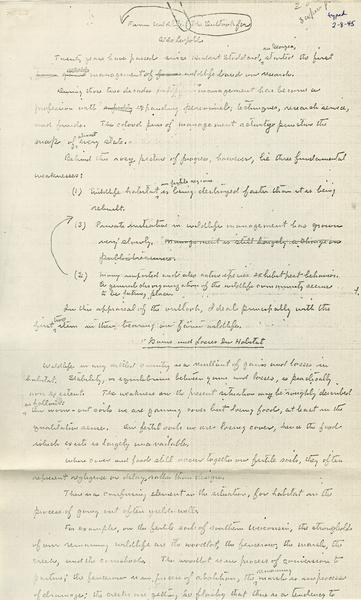 typed
2-8-45
Farm Wildlife: The Outlook for
Aldo Leopold
Twenty years have passed since Herbert Stoddard, in Georgia, started the first
management of wildlife based on research.
During these two decades management has become a
profession with expanding personnel, techniques, research service,
and funds. The colored pins of management activity puncture the
map of almost every state.
Behind this rosy picture of progress, however, lie three fundamental
weaknesses:
(1) Wildlife habitat in fertile regions is being destroyed faster than it is being
rebuilt.
(3) Private initiative in wildlife management has grown
very slowly.
(2) Many imported and also native species exhibit pest behavior.
A general disorganization of the wildlife community seems
to be taking place.
In this appraisal of the outlook, I deal principally with the
first two items in their bearing on farm wildlife.
Gains and Losses in Habitat
Wildlife in any settled country is a resultant of gains and losses in
habitat. Stability, or equilibrium between gains and losses, is practically
non-existent. The weakness in the present situation may be roughly described
as follows: On worn-out soils we are gaining cover but losing foods, at least in the
qualitative sense. On fertile soils we are losing cover, hence the food
which exists is largely unavailable.
Where cover and food still occur together on fertile soils, they often
represent negligence or delay, rather than design.
There is a confusing element in the situation, for habitat in the
process of going out often yields well.
For example, on the fertile soil of southern Wisconsin, the strongholds
of our remaining wildlife are the woodlot, the fencerow, the marsh, the
creek, and the cornshocks. The woodlot is in process of conversion to
pasture; the fencerow is in process of abolition; the remaining marsh is in process
of drainage; the creeks are getting so flashy that there is a tendency to